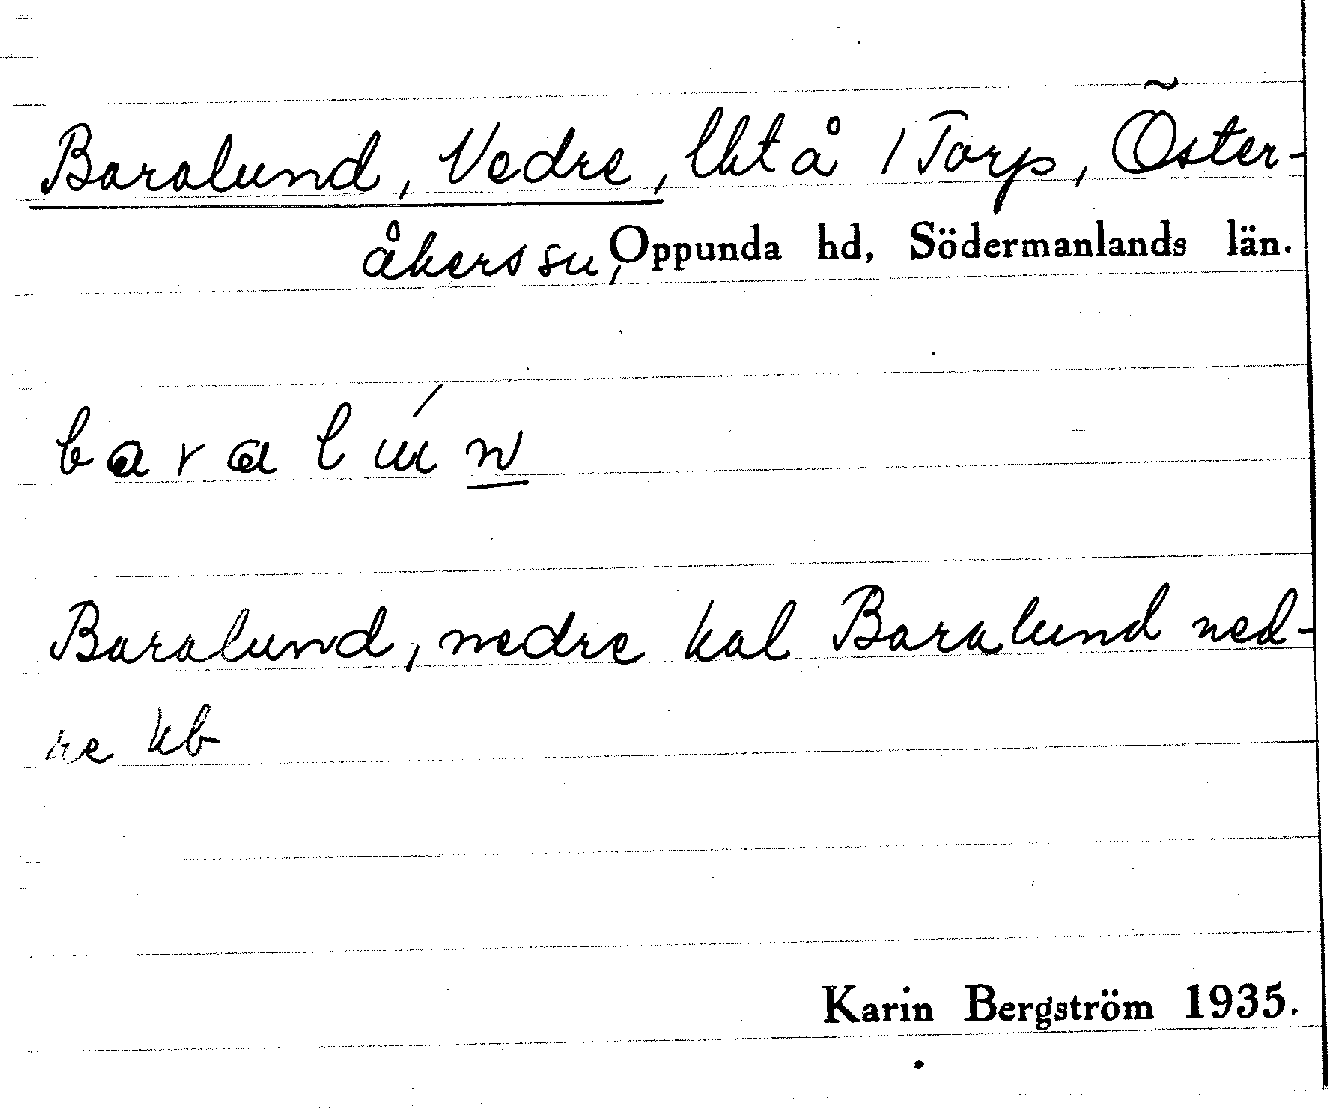 Baralund, Nedre, lht å 1 Torp, Öster-
åkers sn, Oppunda hd, Södermanlands län.
baralún
Baralund, nedre kal Baralund ned-
re kb
Karin Bergström 1935.